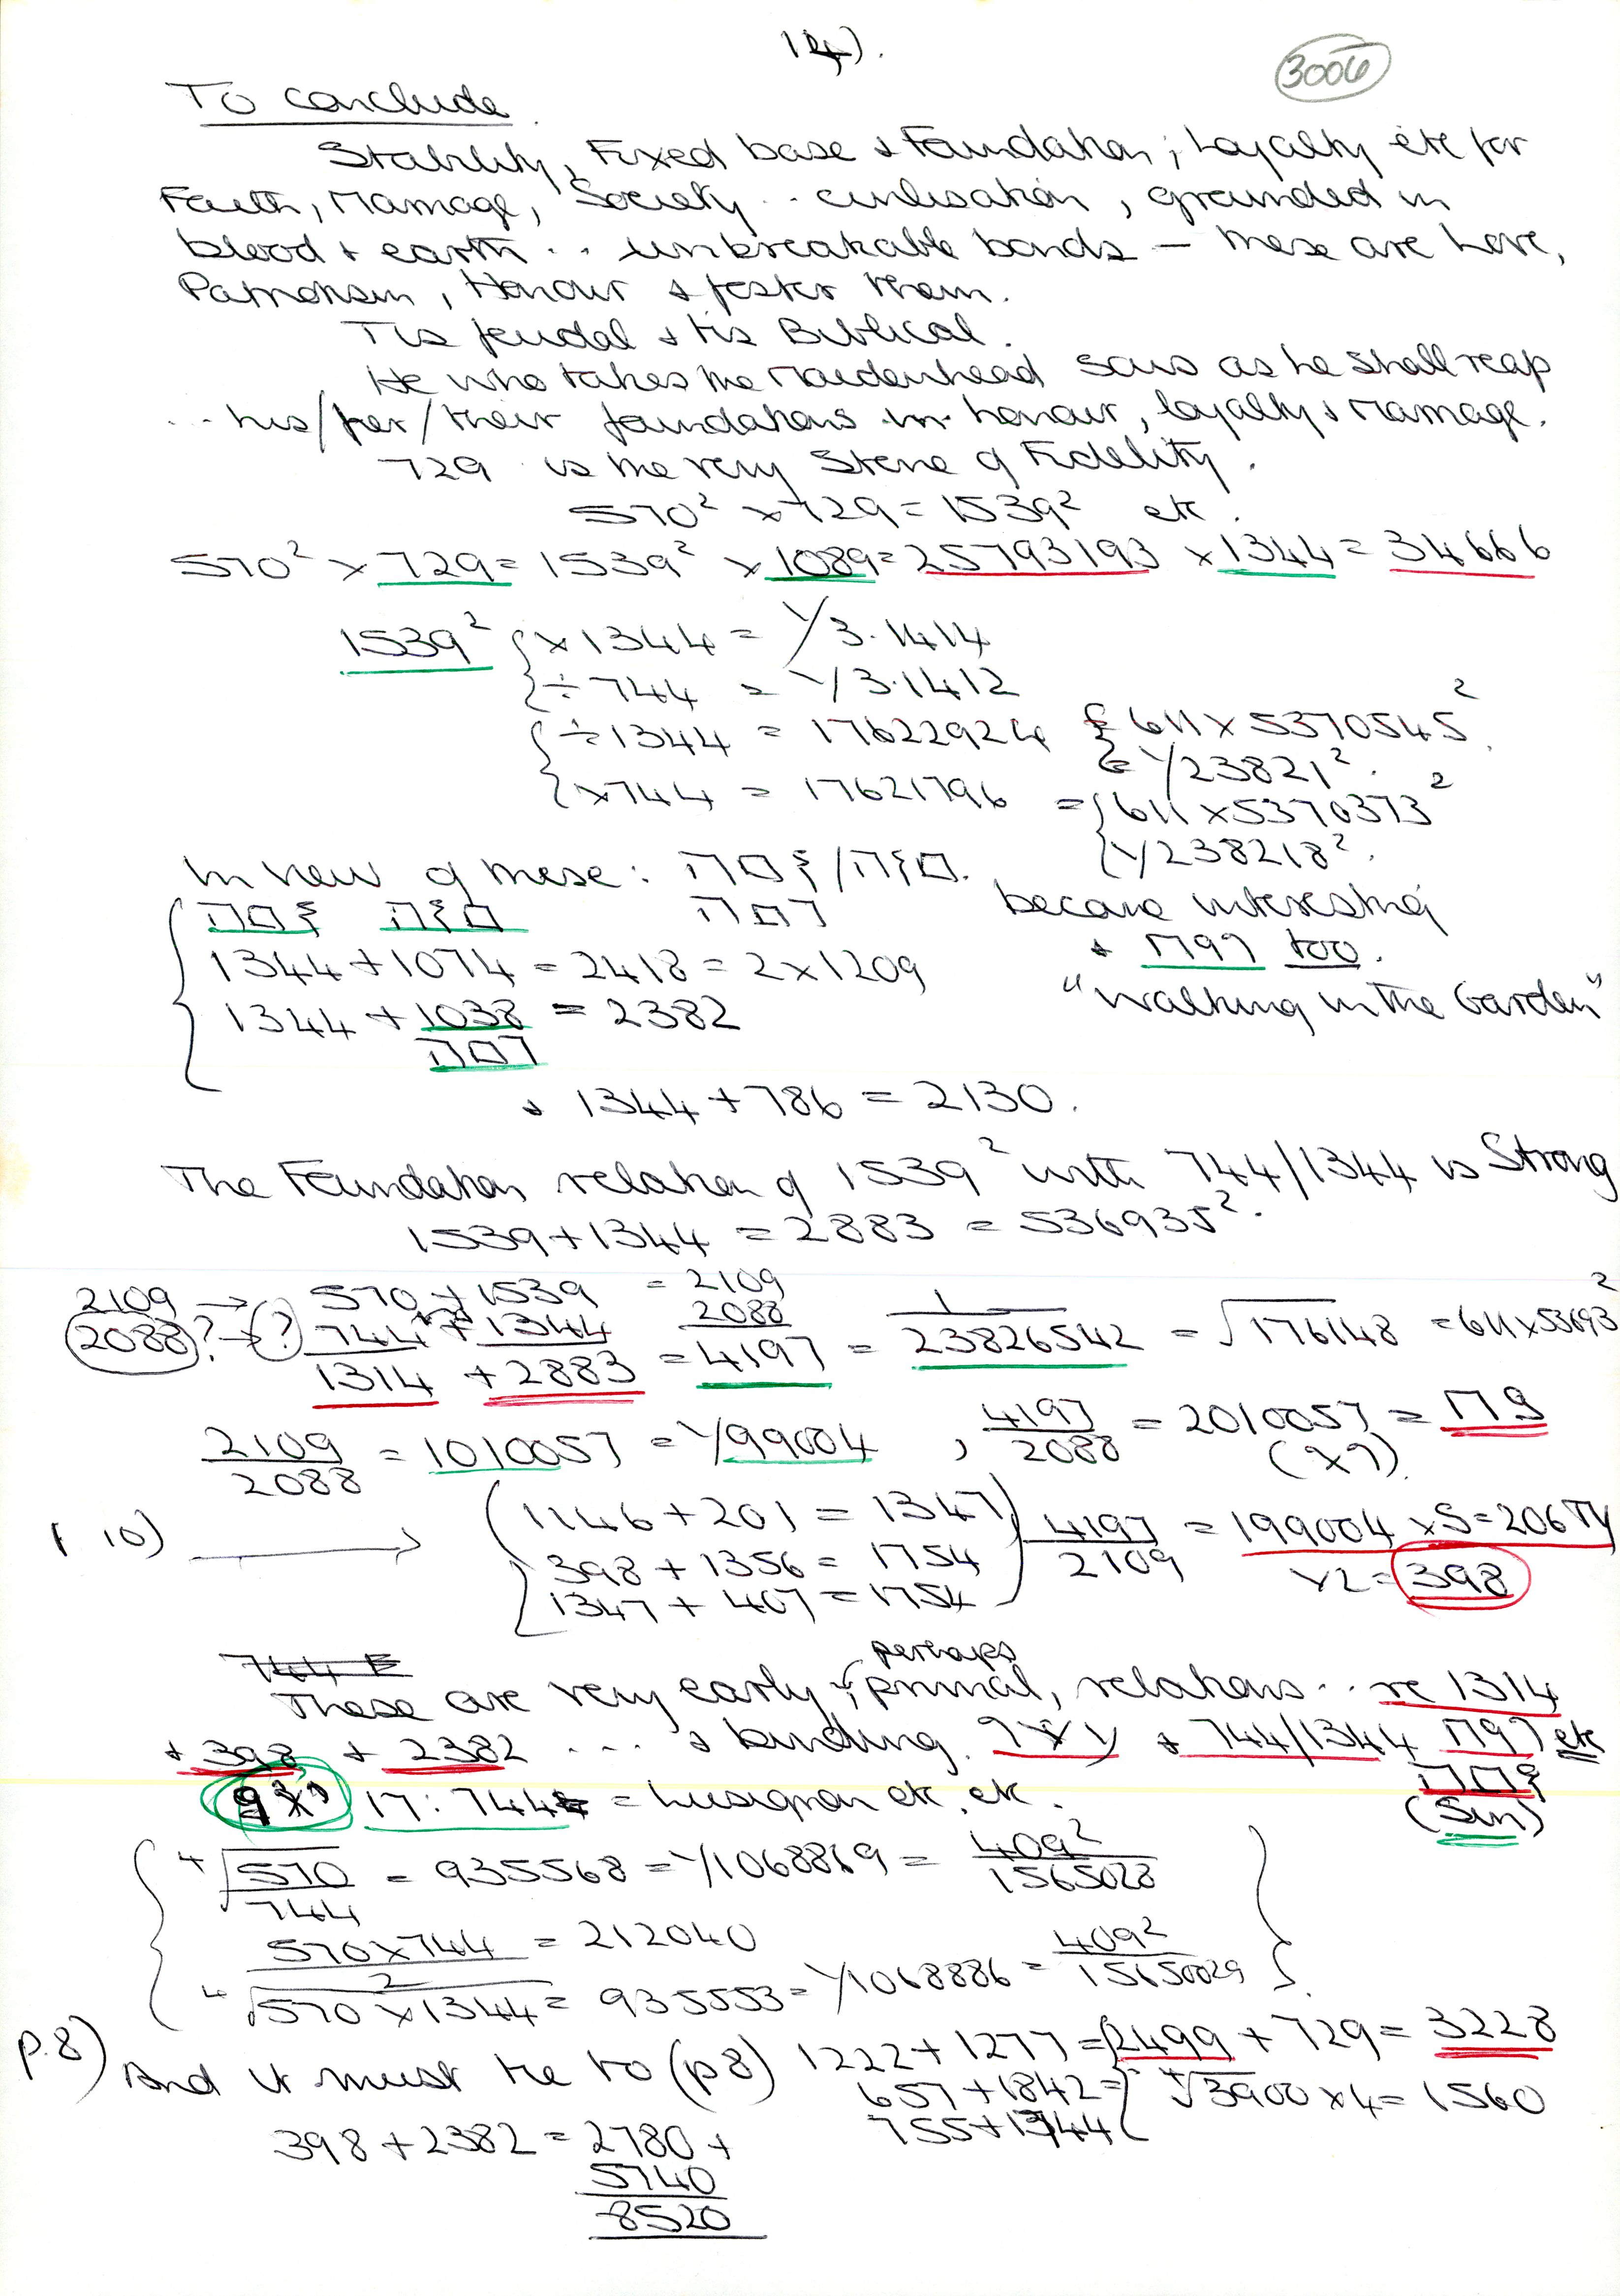 14).
3006
To conclude.
Stability, Fixed base & Foundation; Loyalty etc for
Faith, Marriage, Society .. civilisation, grounded in
blood & earth .. unbreakable bonds — these are here,
Patronism, Honour & foster them.
Tis feudal & tis Biblical.
He who takes the Maidenhead sows as he shall reap
... his/her/their foundations in honour, loyalty & Marriage.
729 is the very Stone of Fidelity.
570² x 729 = 1539² etc.
570² x 729 = 1539² x 1089 = 25793193 x 1344 = 34666
1539² { x 1344 = 1/3.1414
{ ÷ 744 = 1/3.1412
{ ÷ 1344 = 17622924 { 611 x 5370545².
{ 1/23821².
{ x 744 = 17621796 = { 611 x 5370373²
{ 1/238218².
In view of these: become interesting
1344 + 1074 = 2418 = 2 x 1209 & too.
1344 + 1038 = 2382 "Walking in the Garden"
& 1344 + 786 = 2130.
The Foundation relation of 1539² with 744/1344 is Strong
1539 + 1344 = 2883 = 536935².
2109 → 570 + 1539 = 2109
2088 ? → (?) 744 + 1344 2088
1314 + 2883 = 4197 = 1/23826542 = √176148 = 611 x 53693²
2109/2088 = 1010057 = 1/99004, 4197/2088 = 2010057 =
(10) → (1146 + 201 = 1347) 4197/2109 = 199004 x 5 =
398 + 1356 = 1754 x 2 = 398
1347 + 407 = 1754
744
These are very early & perhaps primal, relations .. re 1314
+ 398 + 2382 ... & binding. + 744/1344 etc
17:744 = Lusignan etc. etc. (Sin)
⁴√570/744 = 935568 = 1/1068869 = 409²/1565028
570 x 744/2 = 212040
⁴√570 x 1344 = 935553 = 1/1068886 = 409²/15650029
p.8) And it must tie to (p8) 1222 + 1277 = 2499 + 729 = 3228
657 + 1842 = } ⁴√3900 x 4 = 1560
755 + 1744
398 + 2382 = 2780 +
5740
8520